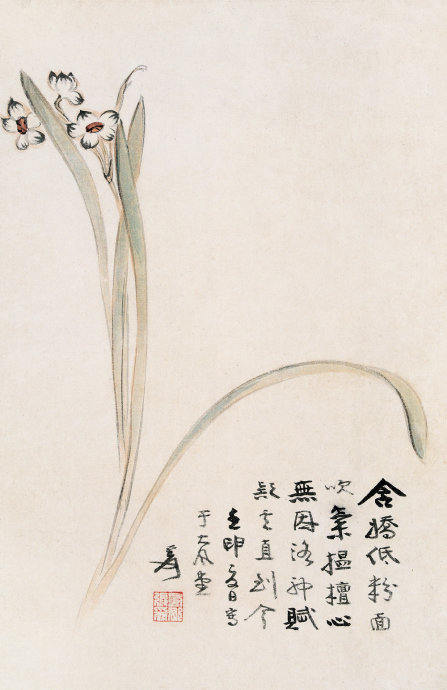 含嬌低粉面
吹氣揾檀心
無因洛神賦
疑云直到今
壬申日寫
于大風堂
爰